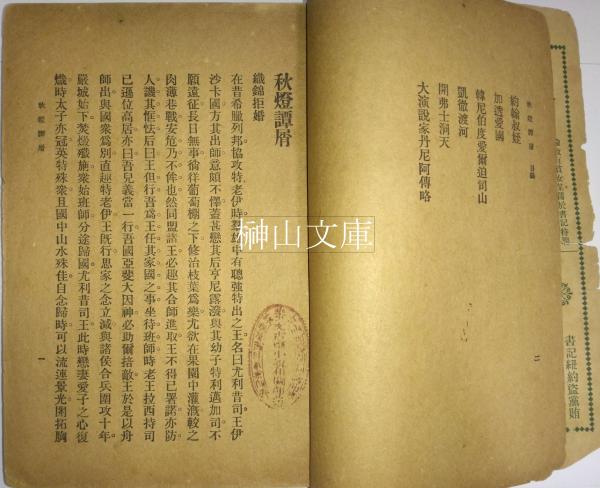 書記紐約盜黨賄
秋燈譚屑 目錄
約翰叔姪
加透愛國
韓尼伯度愛爾迫司山
凱徹渡河
開弗士洞天
大演說家丹尼阿傳略
二
秋燈譚屑
織錦拒婚
在昔希臘列邦協攻特老伊時羣雄中有聰強特出之王名曰尤利昔司王伊
沙卡國方其出師意頗不懌蓋甚戀其后亨尼露潑與其幼子特利邁加司不
願遠征長日無事徜徉葡萄棚之下修治枝葉為樂尤欲在果園中灌漑較之
肉薄巷戰安危乃不侔也然同盟諸王必趣其合師進取王不得已署諾亦防
人譏其恇怯后曰王但行吾為王任其家國之事坐待班師時老王拉西持司
已遜位高居亦曰吾兒義當一行吾國亞斐大因神必助爾掊敵王於是以舟
師出與國衆為別直趣特老伊王既行思家之念立減與諸侯合兵圍攻十年
嚴城始下焚燬殲旃衆始班師分途歸國尤利昔司王此時戀妻愛子之心復
熾時太子亦冠英特殊衆且國中山水殊佳自念歸時可以流連景光開拓胸
秋燈譚屑
一
榊山文庫